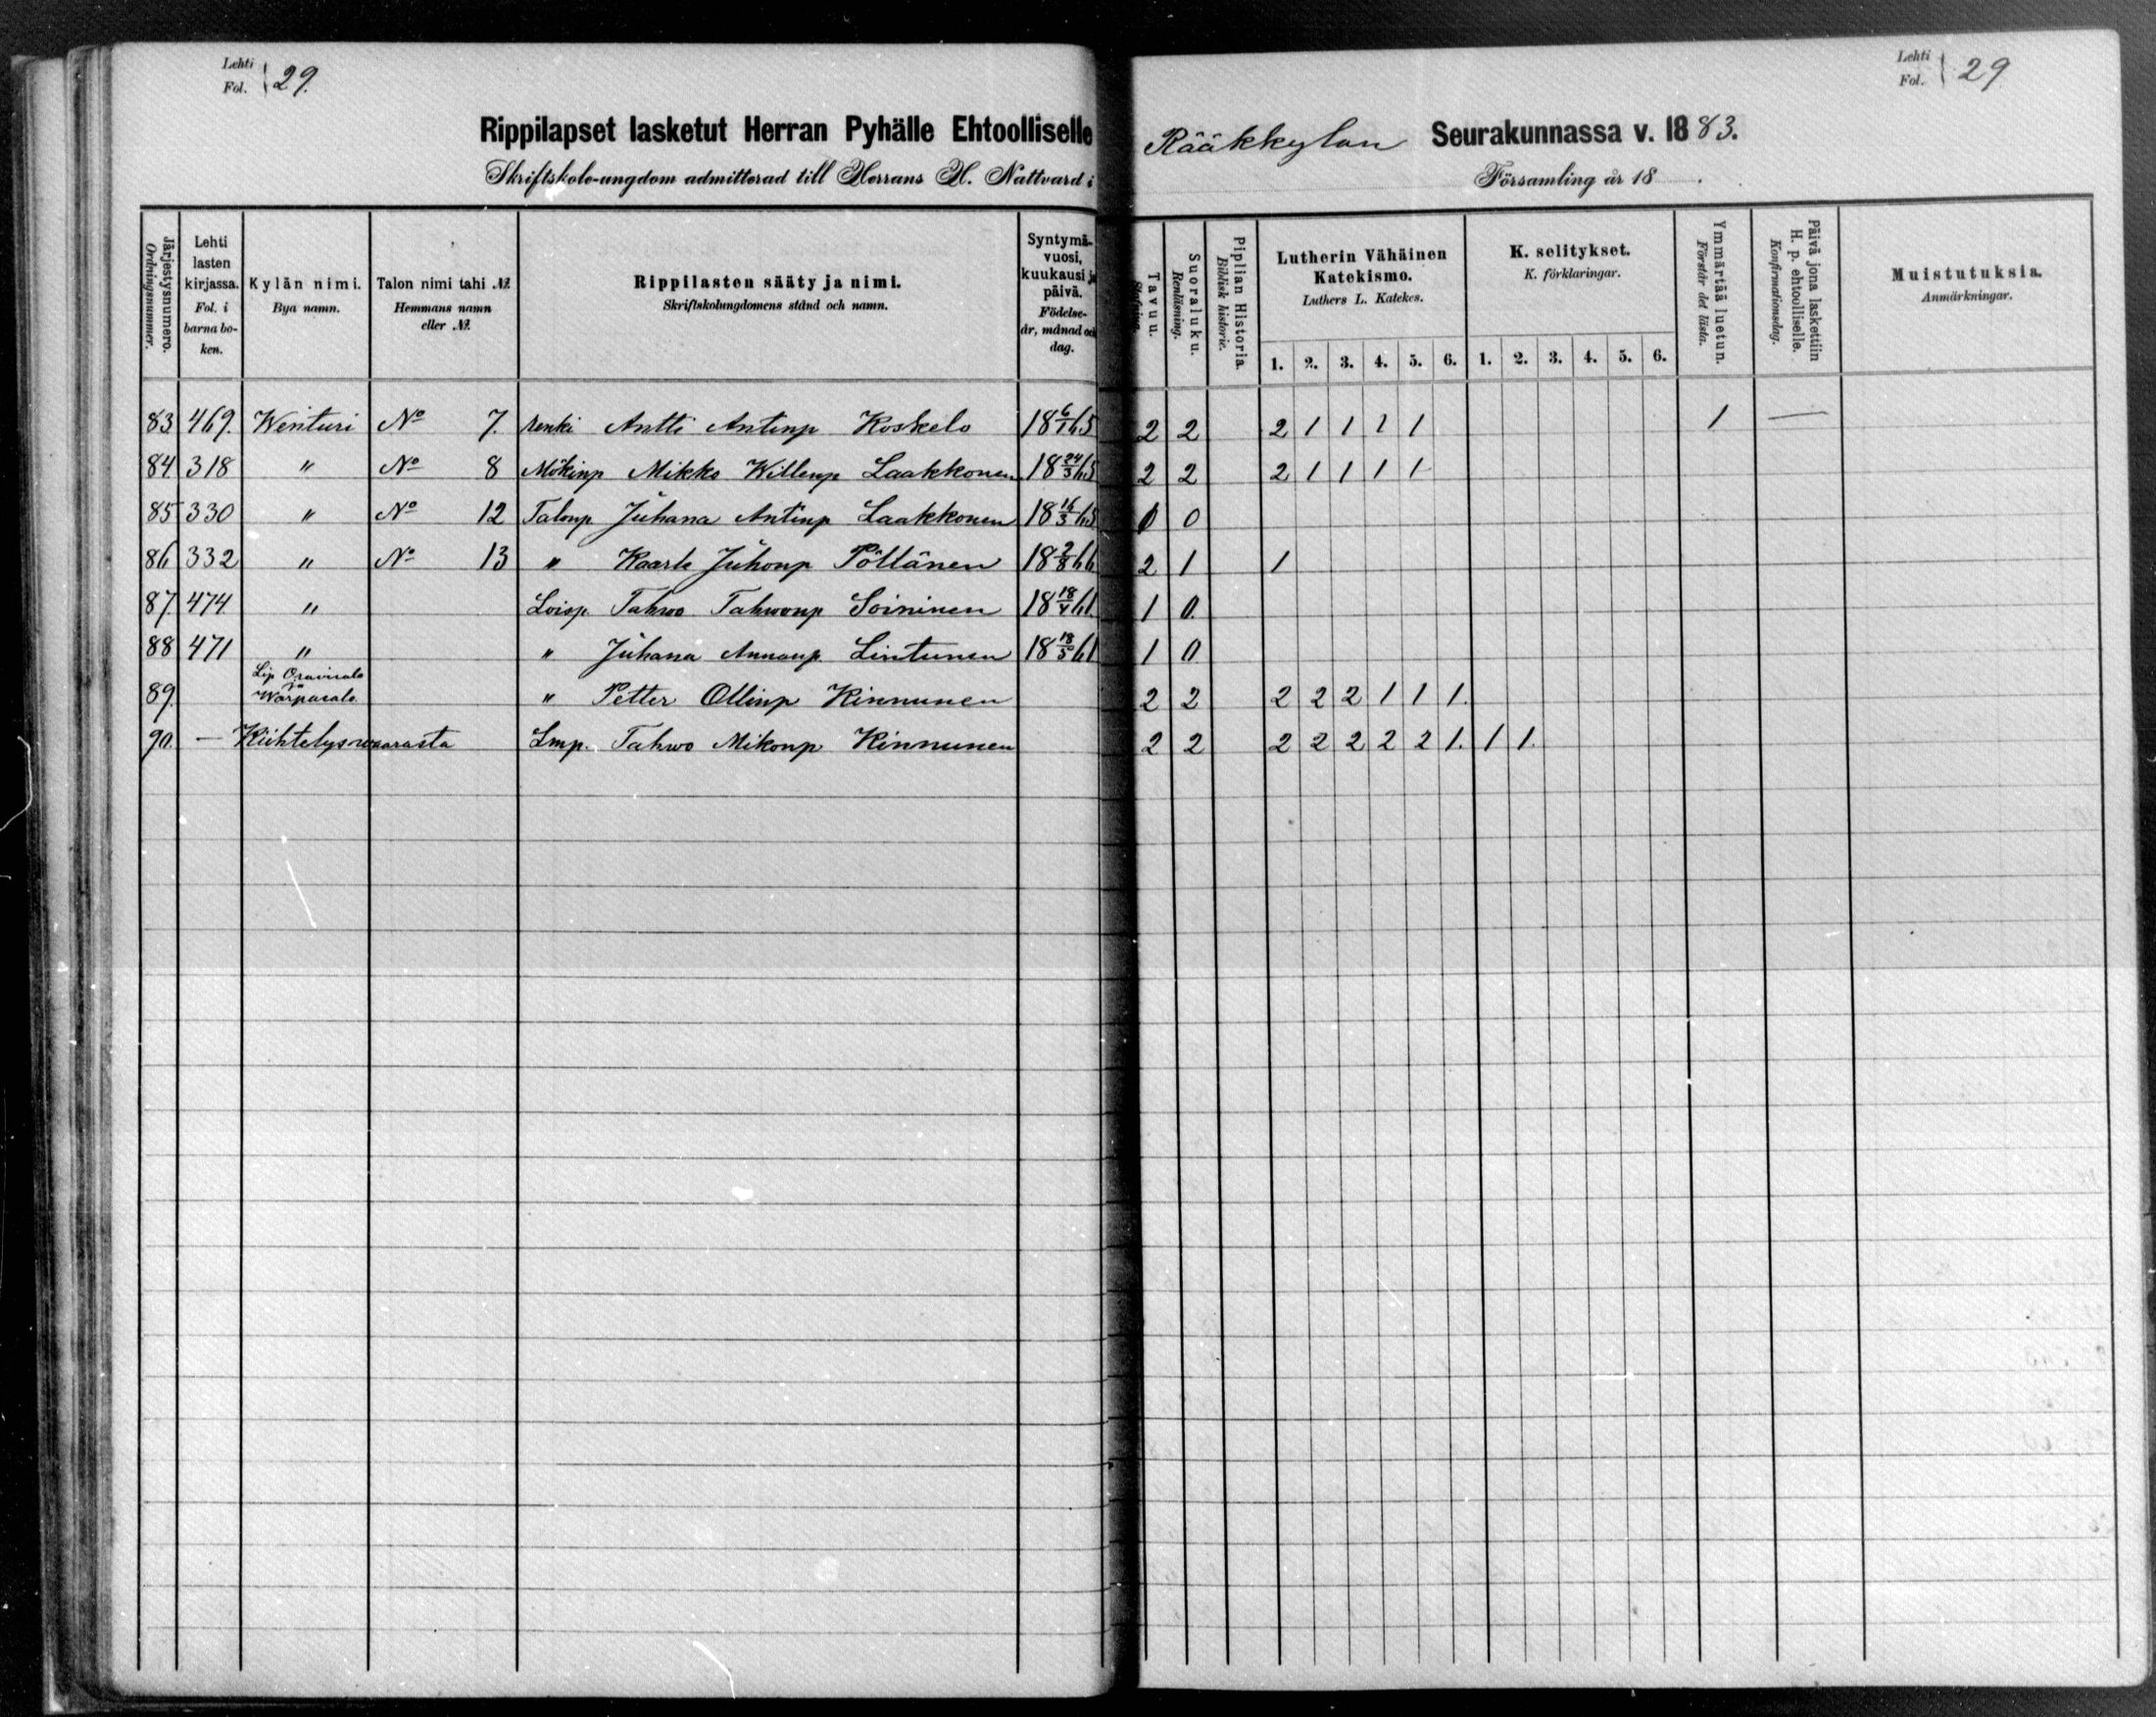 Lehti
Fol. 29.
Rippilapset lasketut Herran Pyhälle Ehtoolliselle
Skriftskole-ungdom admitterad till Herrans H. Nattvard i
Järjestysnumero.
Ordningsnummer.
Lehti lasten kirjassa.
Fol. i barnaboken.
Kylän nimi.
Bya namn.
Talon nimi tahi №
Hemmans namn eller №
Rippilasten sääty ja nimi.
Skriftskolungdomens stånd och namn.
Syntymä-vuosi, kuukausi ja päivä.
Födelse-år, månad och dag.
83 469. Wenturi No 7. Renki Antti Antinp Koskelo 18 6/1 65
84 318 " No 8 Mökinp Mikko Willenp Laakkonen 18 24/3 65
85 330 " No 12 Talonp Juhana Antinp Laakkonen 18 16/3 65
86 332 " No 13 " Kaarle Juhonp Pöllänen 18 2/8 66
87. 474 " Loisp. Tahwo Tahwonp Soininen 18 18/4 61.
88 471 " " Juhana Annanp. Lintunen 18 18/5 61
89. Lip Oravisalo ja Warpasalo " Petter Ollinp Kinnunen
90. — Kiihtelyswaarasta Lmp. Tahwo Mikonp Kinnunen
Lehti
Fol. 29
Rääkkylän Seurakunnassa v. 1883.
Församling år 18 .
Tavuu.
Stafning.
Suoraluku.
Renläsning.
Piplian Historia.
Biblisk historie.
Lutherin Vähäinen Katekismo.
Luthers L. Katekes.
1. 2. 3. 4. 5. 6.
K. selitykset.
K. förklaringar.
1. 2. 3. 4. 5. 6.
Ymmärtää luetun.
Förstår det lästa.
Päivä jona laskettiin H. p. ehtoolliselle.
Konfirmationsdag.
Muistutuksia.
Anmärkningar.
2 2 2 1 1 1 1 1 —
2 2 2 1 1 1 1
0 0
2 1 1
1 0.
1 0
2 2 2 2 2 1 1 1.
2 2 2 2 2 2 2 1. 1 1.